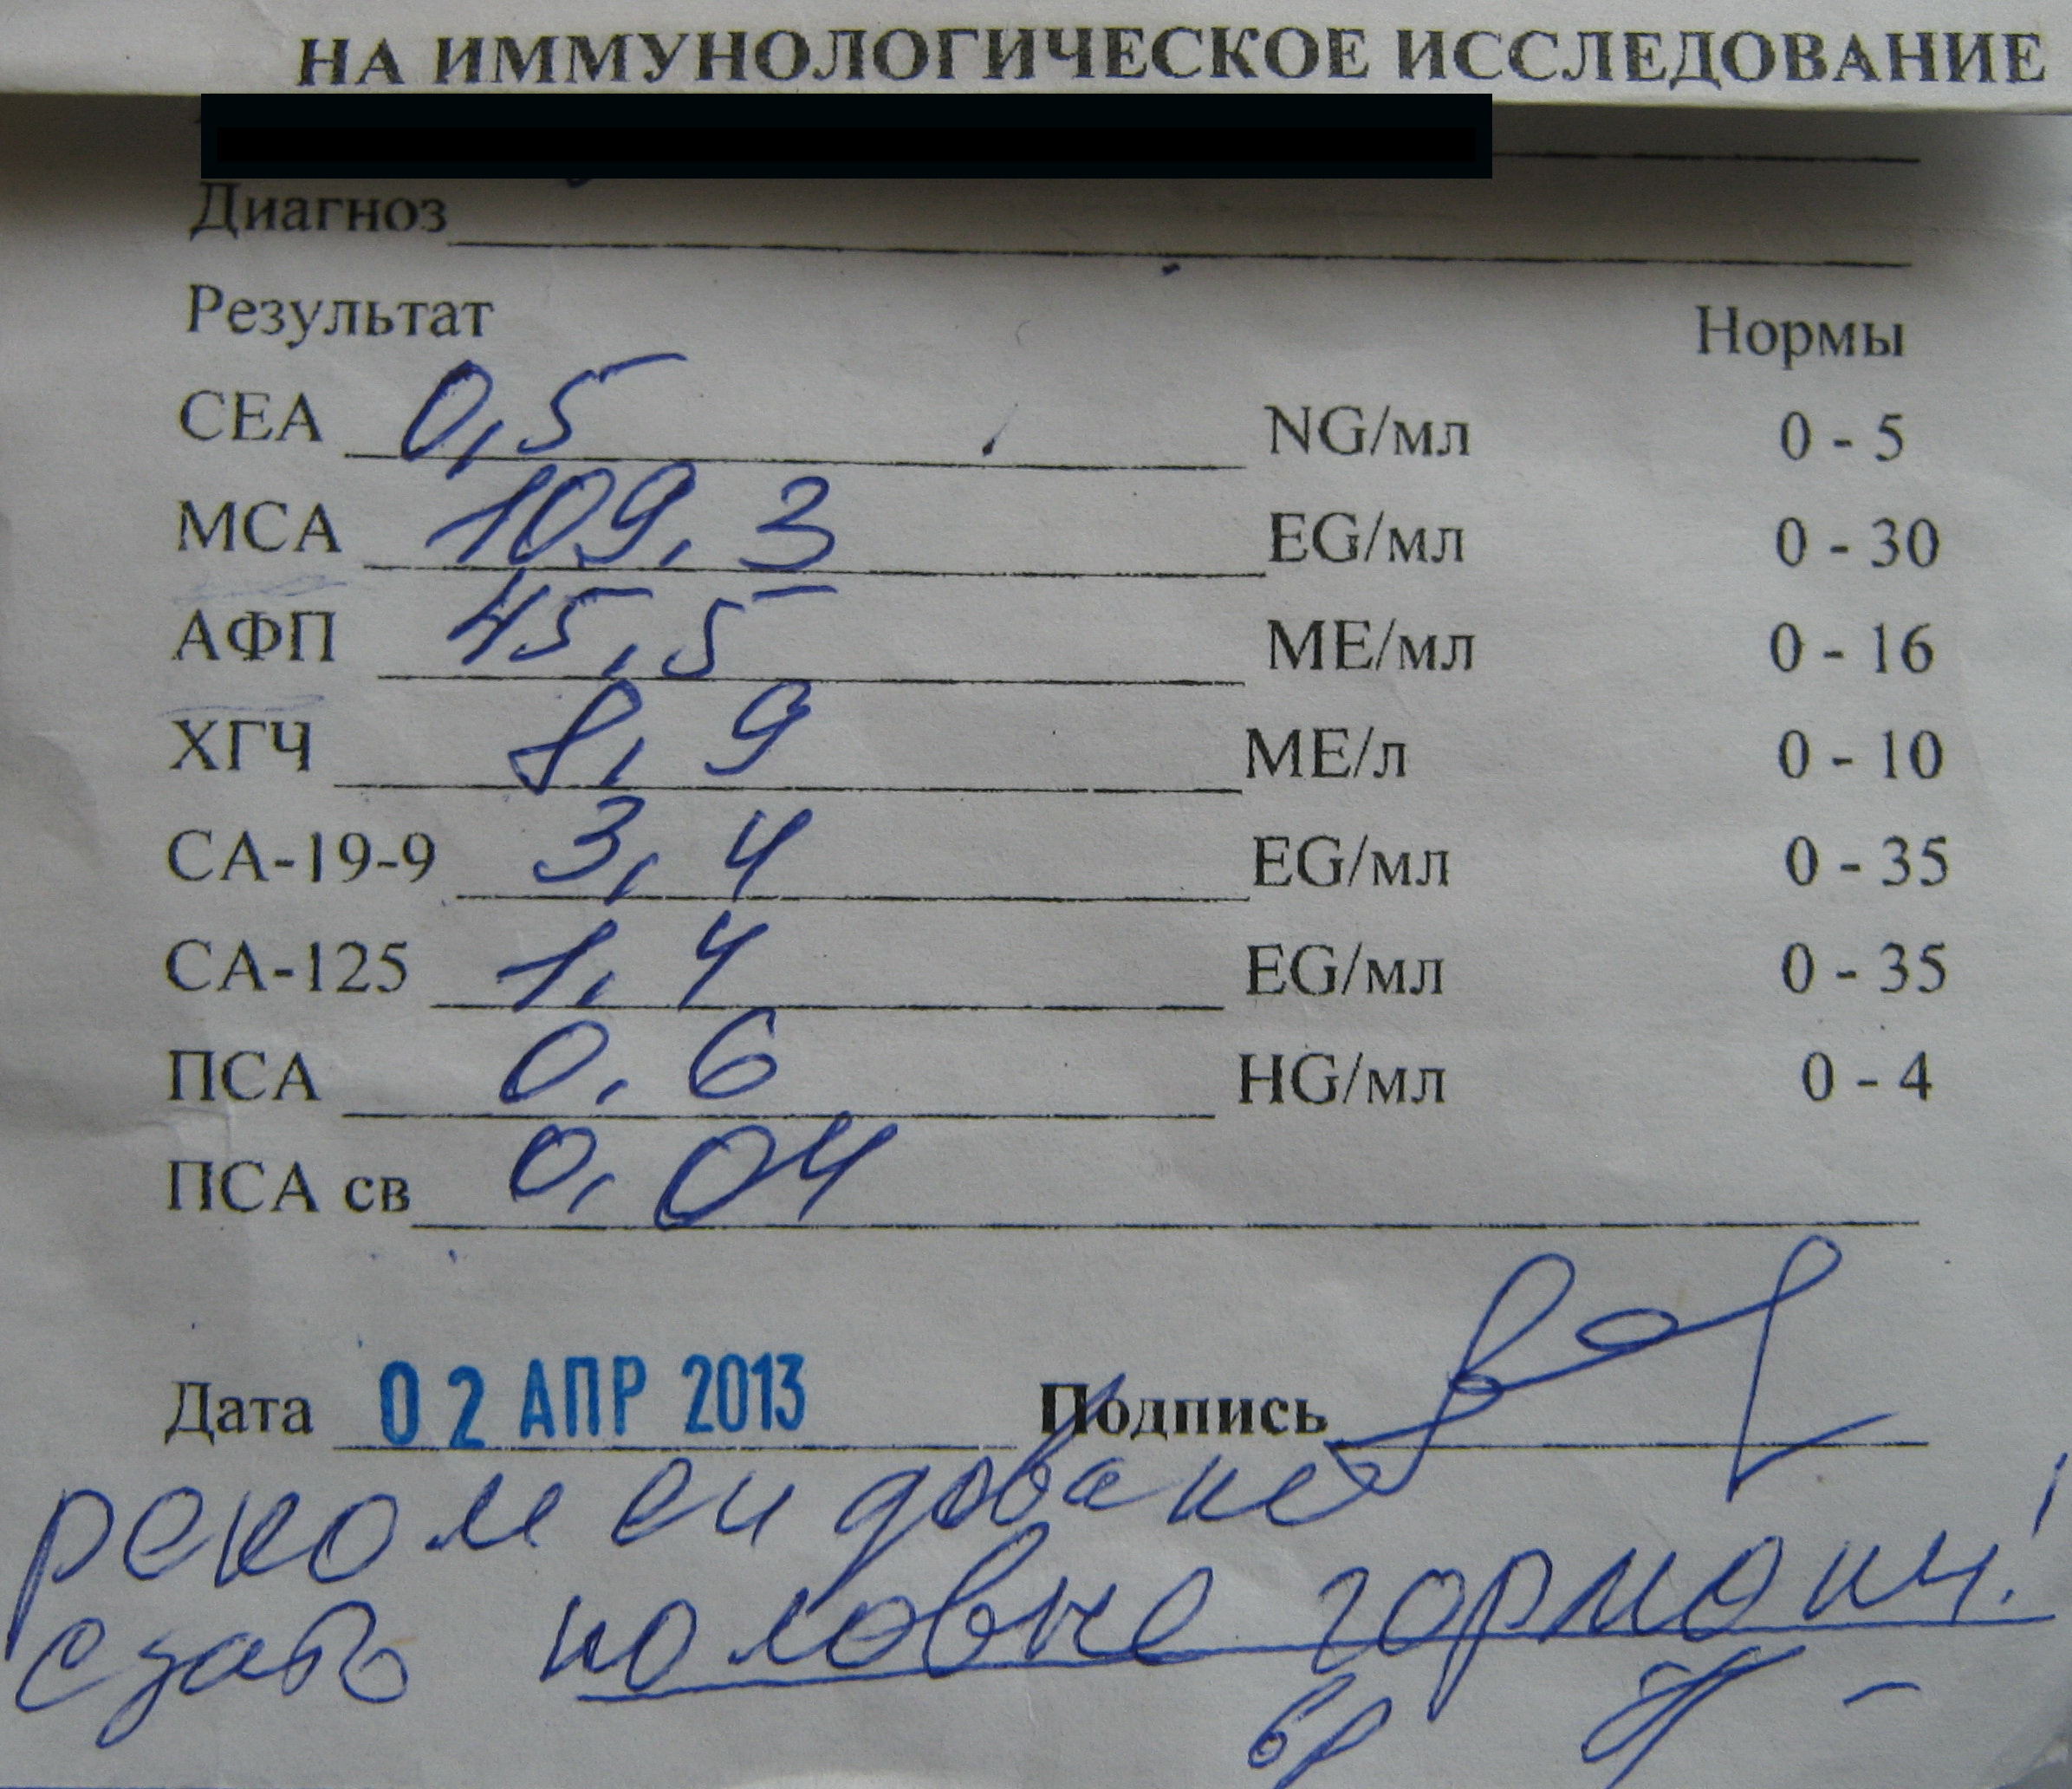 НА ИММУНОЛОГИЧЕСКОЕ ИССЛЕДОВАНИЕ
Диагноз
Результат Нормы
СЕА 0,5 NG/мл 0 - 5
МСА 109,3 EG/мл 0 - 30
АФП 45,5 МЕ/мл 0 - 16
ХГЧ 8,9 МЕ/л 0 - 10
СА-19-9 3,4 EG/мл 0 - 35
СА-125 1,4 EG/мл 0 - 35
ПСА 0,6 HG/мл 0 - 4
ПСА св 0,04
Дата 02 АПР 2013 Подпись
рекомендовано
сдать половые гормоны!
вр